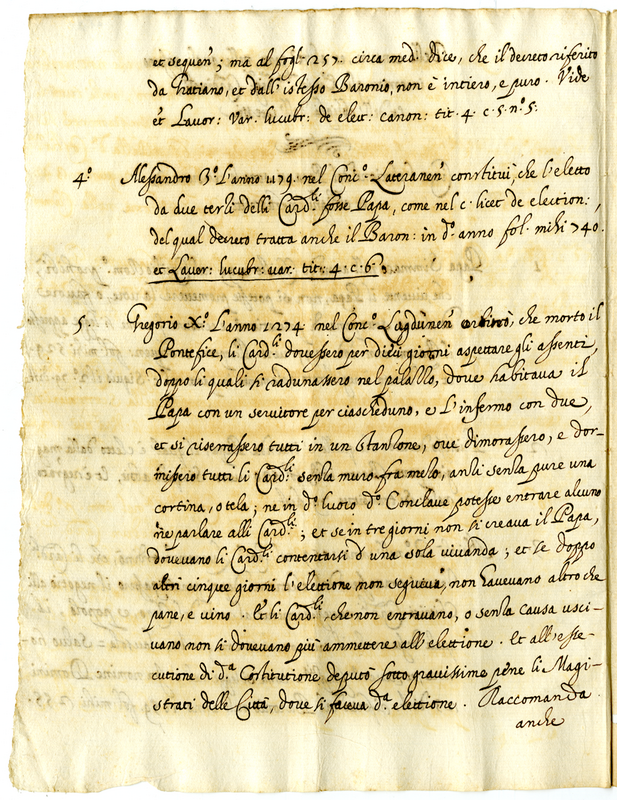 et sequen; mà al fogl. 257. circa med. dice, che il decreto riferito
da Gratiano, et dall' istesso Baronio, non è intiero, e puro. Vide
et Lavor: var. lucubr: de elect: canon: tit. 4. c. 5. n.º 5.
4.º Alessandro 3.º l'anno 1179. nel Conc.º Lateranen constituì, che l'eletto
da due terzi delli Card.li fosse Papa, come nel c. licet de election:,
del qual decreto tratta anche il Baron: in d.º anno fol. mihi 740.
et Lavor: lucubr: var. tit: 4. c. 6.
5. Gregorio X.º l'anno 1274. nel Conc.º Lugdunen ordinò, che morto il
Pontefice, li Card.li dovessero per dieci giorni aspettare gli assenti,
doppo li quali si radunassero nel palazzo, dove habitava il
Papa con un servitore per ciascheduno, e l'infermo con due,
et si riserrassero tutti in un stanzone, ove dimorassero, e dor-
missero tutti li Card.li senza muro fra mezo, anzi senza pure una
cortina, o tela; ne in d.º luoco d.º Conclave potesse entrare alcuno
ne parlare alli Card.li; et se in tre giorni non si creava il Papa,
dovevano li Card.li contentarsi d'una sola vivanda; et se doppo
altri cinque giorni l'elettione non seguiva, non havevano altro che
pane, e vino. Et li Card.li, che non entravano, o senza causa usci-
vano non si dovevano più ammettere all' elettione. Et all' esse-
cutione di d.ª Costitutione deputò sotto gravissime pene li Magi-
strati delle Città, dove si faceva d.ª elettione. Raccomanda
anche